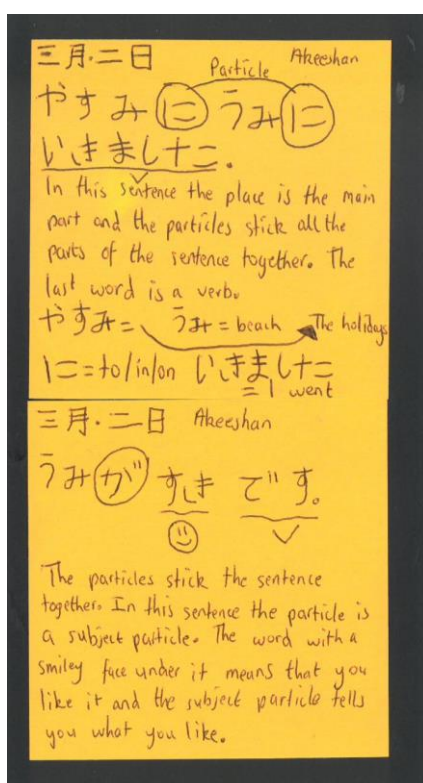 三月・二日 Akeeshan
Particle
やすみに うみに
いきました.
In this sentence the place is the main
part and the particles stick all the
parts of the sentence together. The
last word is a verb.
やすみ= うみ=beach The holidays
に=to/in/on いきました
= I went
三月・二日 Akeeshan
うみが すき です。
The particles stick the sentence
together. In this sentence the particle is
a subject particle. The word with a
smiley face under it means that you
like it and the subject particle tells
you what you like.